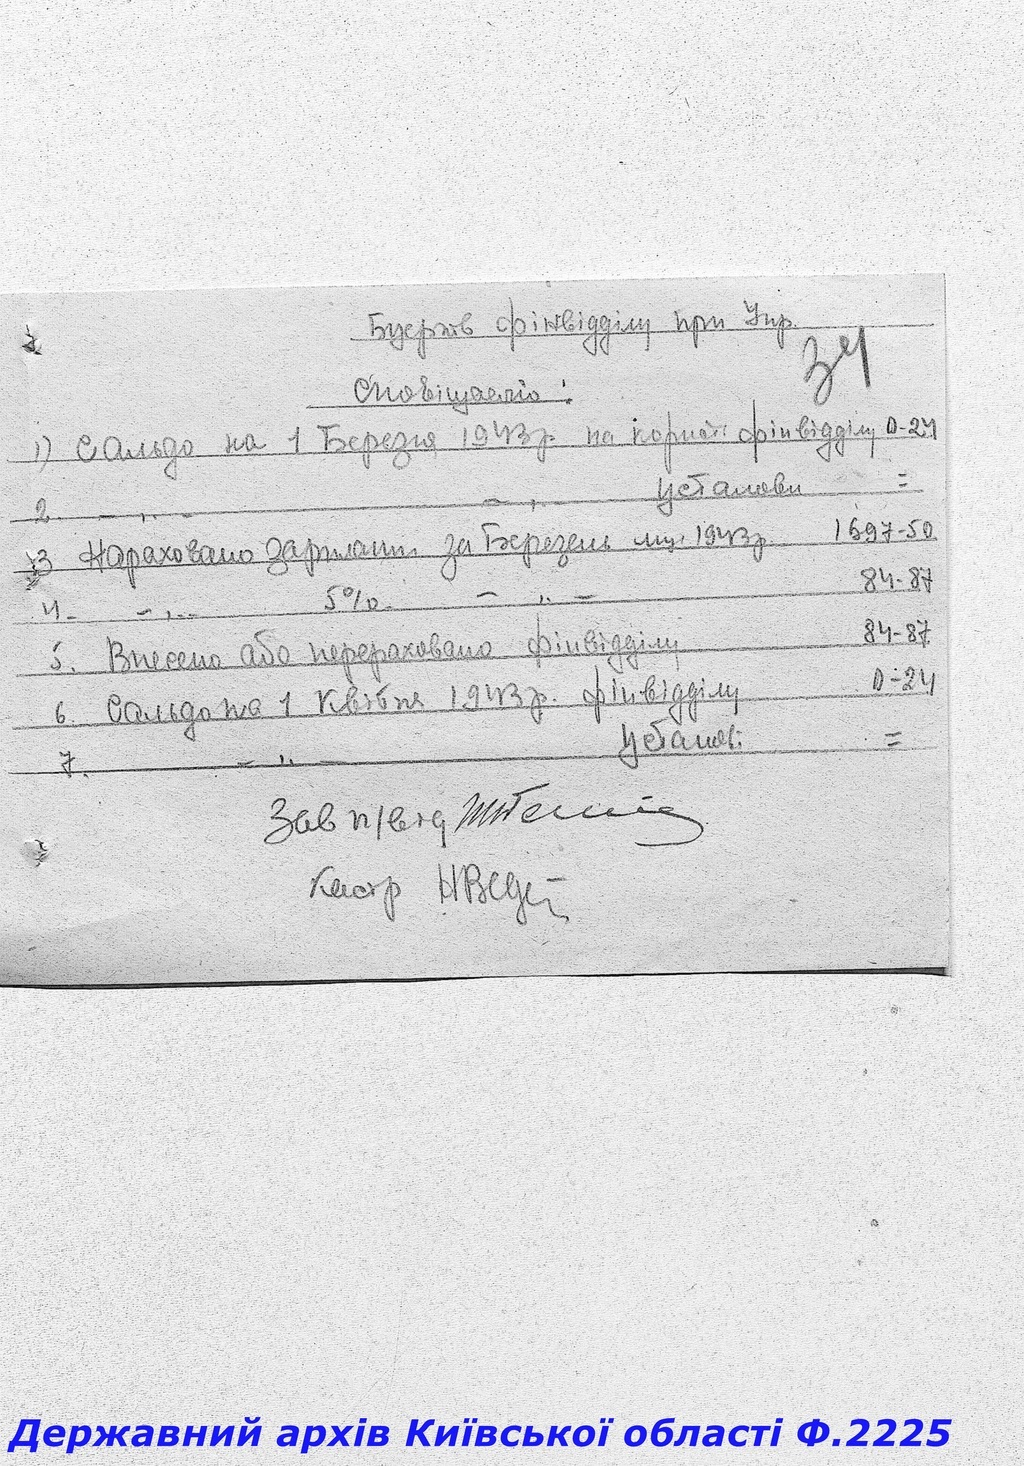 фінвідділу при Упр.
34
Сповіщаємо:
1) Сальдо на 1 Березня 1943 р. на корист. фінвідділу 0-24
2. -,,- -,,- Установи =
3 Нараховано Зарплати за Березень м-ц. 1943 р. 1697-50
4. -,,- 5% -,,- 84-87
5. Внесено або перераховано фінвідділу 84-87
6. Сальдо на 1 Квітня 1943 р. фінвідділу 0-24
7. -,,- Установ. =
Зав п/від
Державний архів Київської області Ф.2225